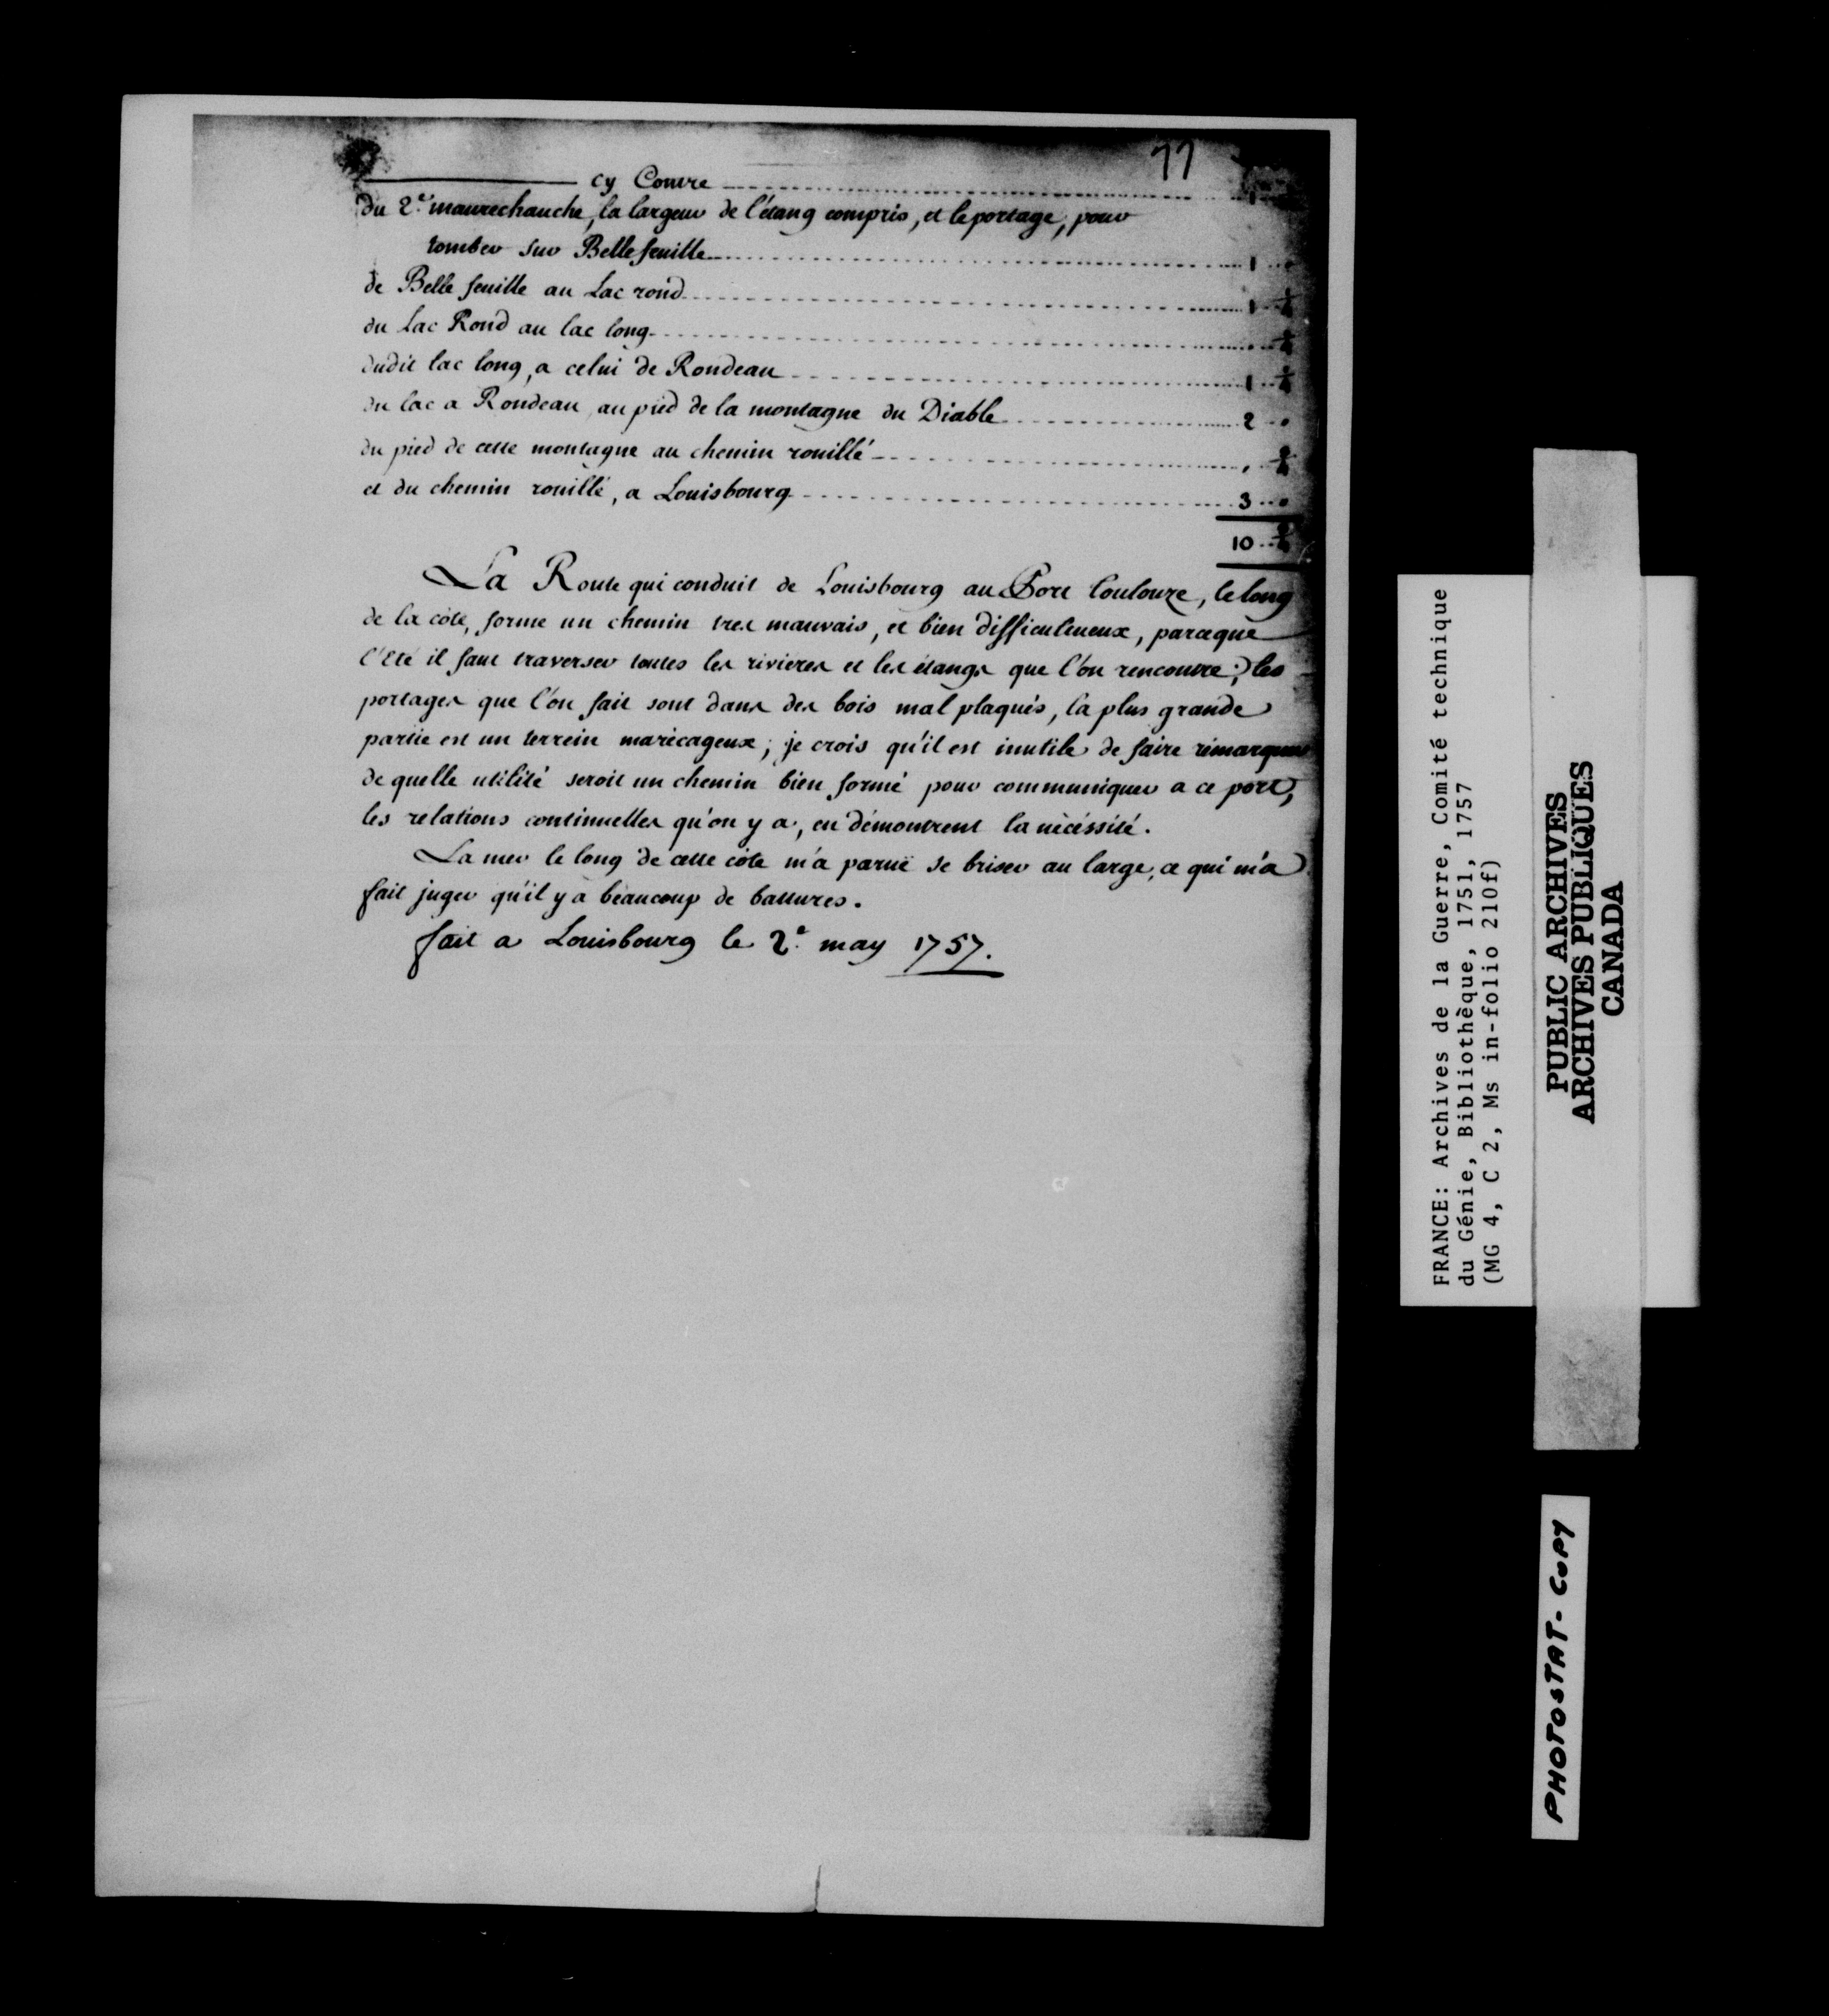 77
cy Contre
du 2.e maurechauche, la largeur de l'étang compris, et le portage, pour
tomber sur Bellefeuille 1 "
de Belle feuille au Lac rond 1
du Lac Rond au lac long
dudit lac long, a celui de Rondeau 1
du lac a Rondeau, au pied de la montagne du Diable 2 "
du pied de cette montagne au chemin rouillé
et du chemin rouillé, a Louisbourg 3 "
10
La Route qui conduit de Louisbourg au Port Toulouze, le long
de la côte, forme un chemin tres mauvais, et bien difficultueux, parceque
l'Eté il faut traverser toutes les rivieres et les étangs que l'on rencontre; les
portages que l'on fait sont dans des bois mal plaqués, la plus grande
partie est un terrein marécageux; je crois qu'il est inutile de faire rémarquer
de quelle utilité seroit un chemin bien formé pour communiquer a ce port,
les relations continuelles qu'on y a, en démontrent la nécéssité.
La mer le long de cette côte m'a parue se briser au large, ce qui m'a
fait juger qu'il y a beaucoup de battures.
fait a Louisbourg le 2.e may 1757.
FRANCE: Archives de la Guerre, Comité technique
du Génie, Bibliothèque, 1751, 1757
(MG 4, C 2, Ms in-folio 210f)
PUBLIC ARCHIVES
ARCHIVES PUBLIQUES
CANADA
PHOTOSTAT-COPY